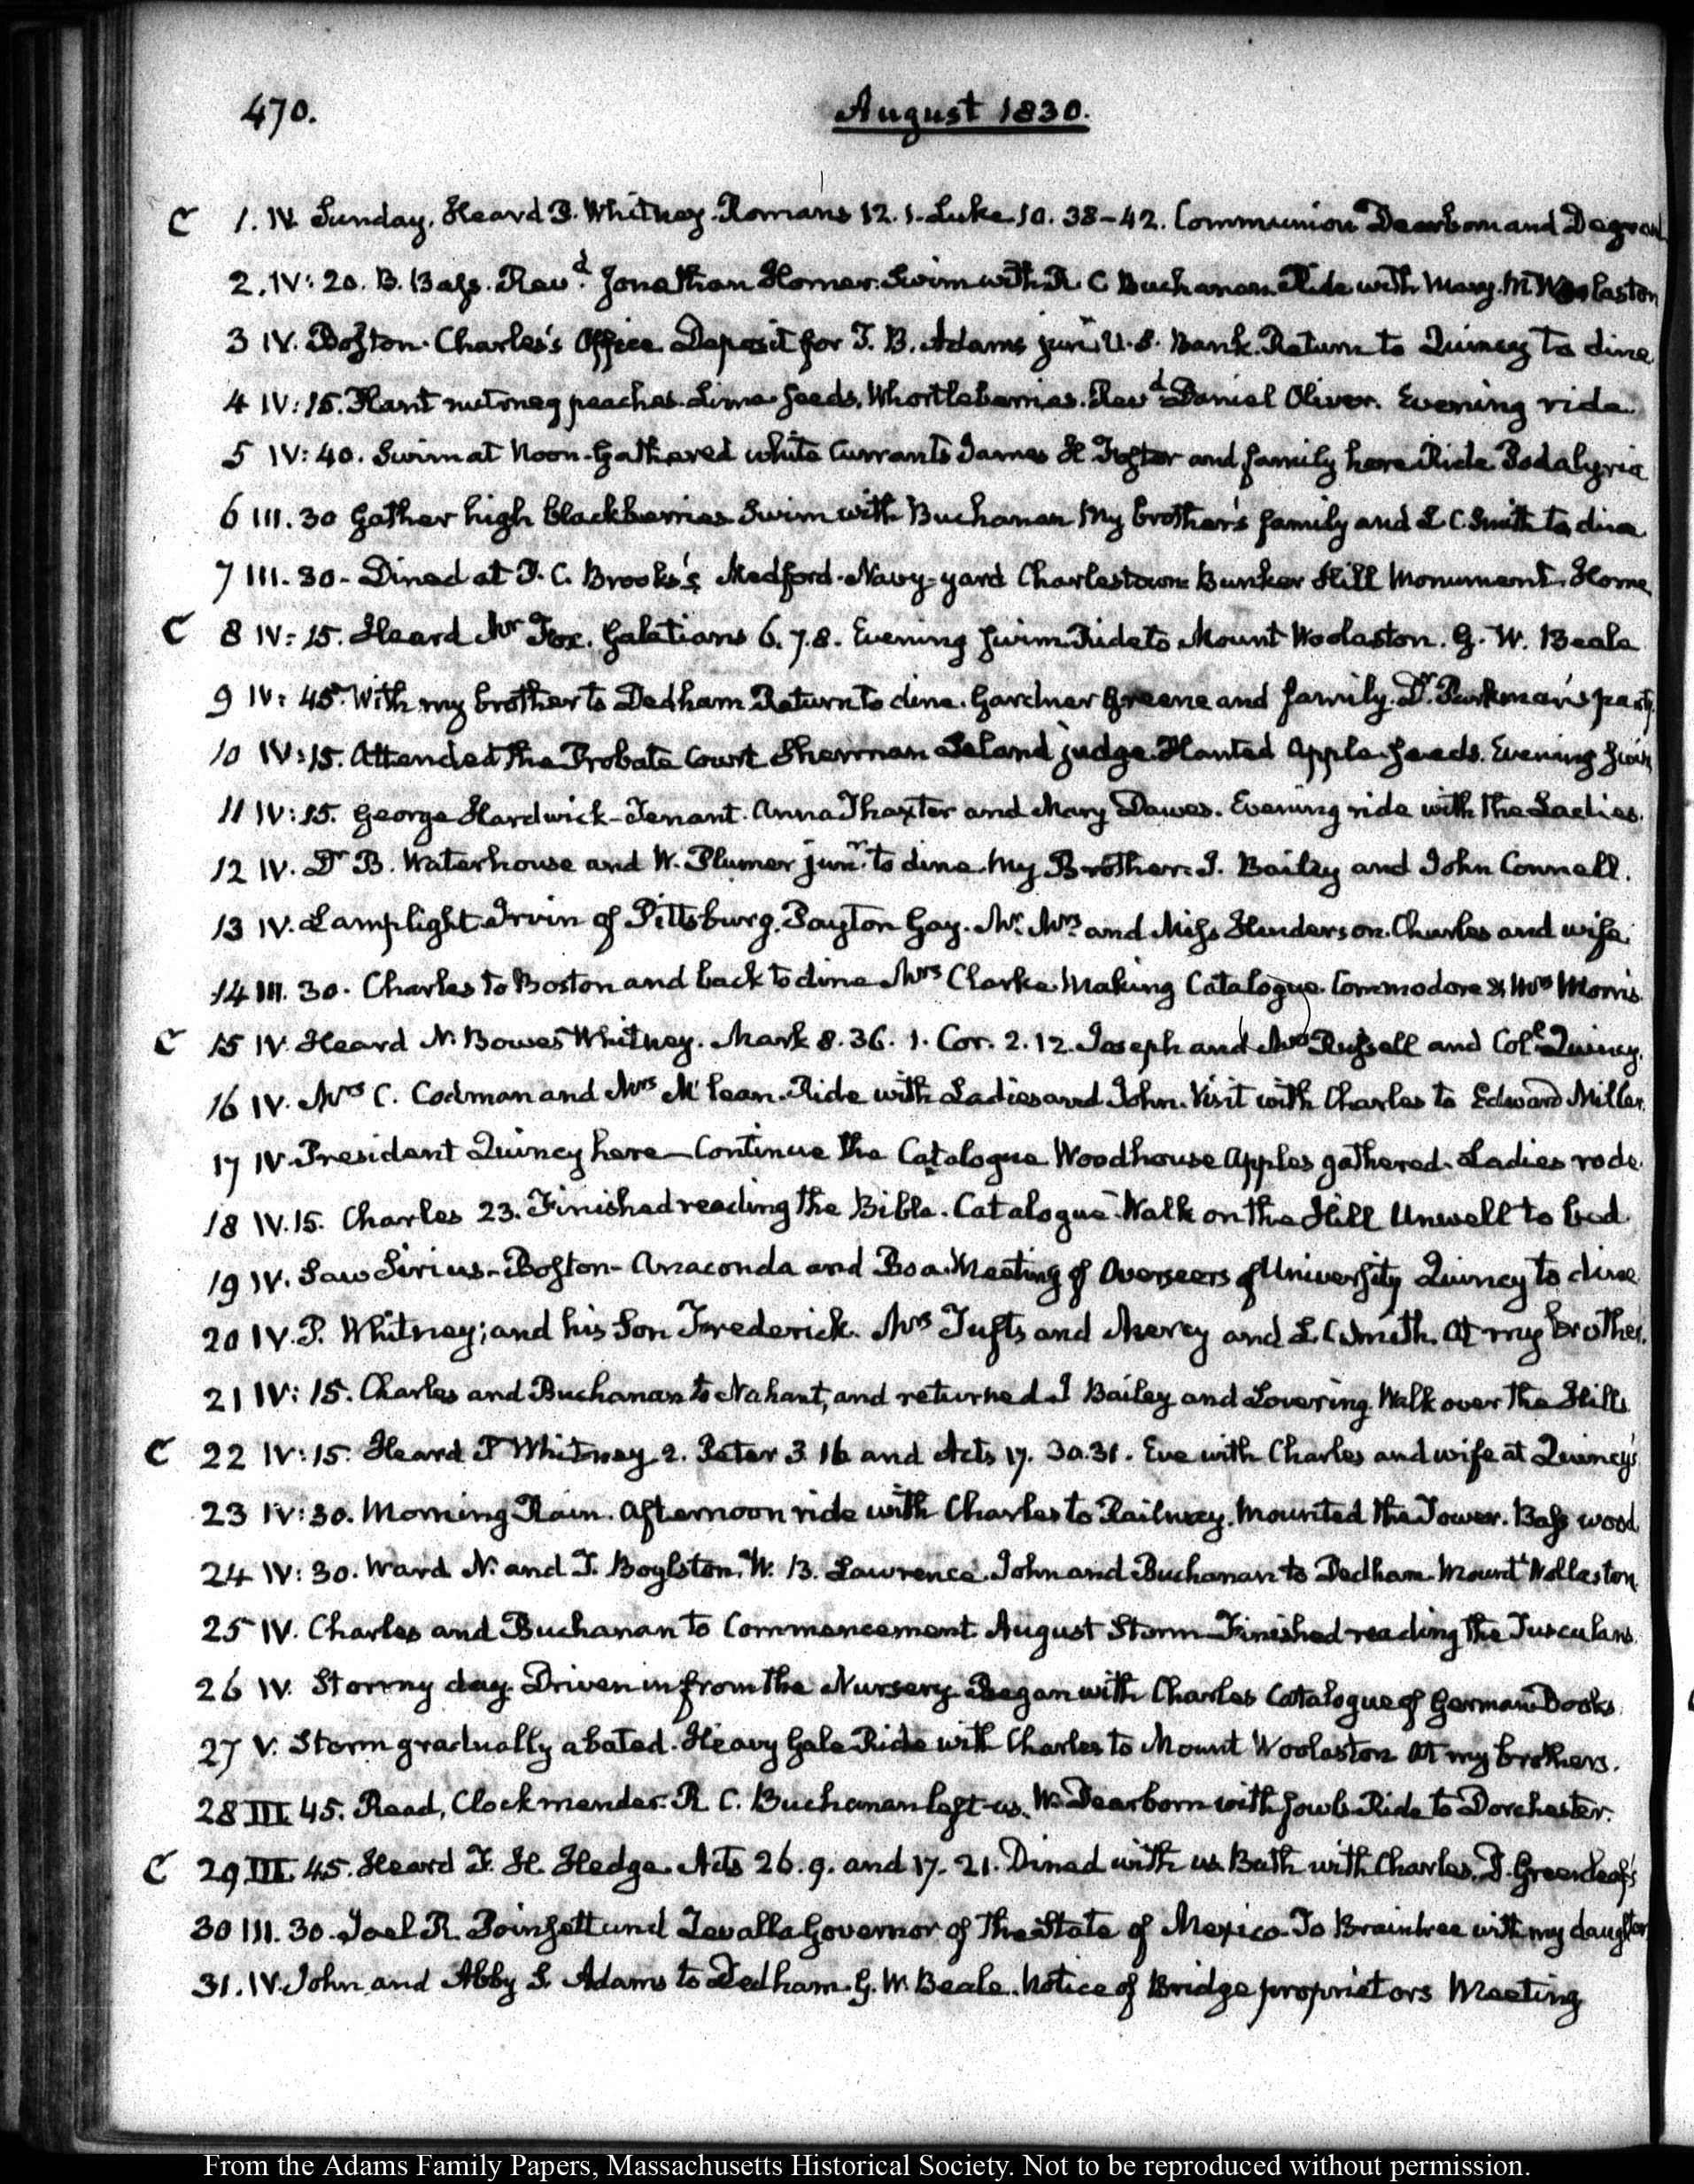 470.
August 1830.
C 1. IV. Sunday. Heard P. Whitney. Romans 12. 1. Luke 10. 38-42. Communion Dearborn and Degrand
2. IV: 20. B. Bass. Revd. Jonathan Homer. Swim with R. C Buchanan. Ride with Mary. Mt Woolaston
3 IV. Boston. Charles's Office Deposit for T. B. Adams junr. U.S. Bank. Return to Quincy to dine
4 IV: 15. Plant nutmeg peaches. Lime seeds. Whortleberries. Revd Daniel Oliver. Evening ride
5 IV: 40. Swim at Noon. Gathered white Currants James H Foster and family here Ride Podalyria
6 III. 30 Gather high blackberries Swim with Buchanan My brother's family and L C Smith to dine
7 III. 30 - Dined at P. C. Brooks's Medford. Navy-yard Charlestown Bunker Hill Monument. Home
C 8 IV: 15. Heard Mr Fox. Galatians 6. 7. 8. Evening swim Ride to Mount Woolaston. G. W. Beale
9 IV: 45. With my brother to Dedham Return to dine. Gardner Greene and family. Dr. Parkman's party
10 IV: 15. Attended the Probate Court Sherman Leland judge. Planted Apple-seeds. Evening swim
11 IV: 15. George Hardwick - Tenant. Anna Thaxter and Mary Dawes. Evening ride with the Ladies.
12 IV. Dr B. Waterhouse and W. Plumer junr. to dine. My Brother. J. Bailey and John Connell.
13 IV. Lamplight Irvin of Pittsburg. Payton Gay. Mr. Mrs and Miss Henderson. Charles and wife
14 III. 30. Charles to Boston and back to dine Mrs Clarke. Making Catalogue. Commodore & Mrs Morris.
C 15 IV. Heard N. Bowes Whitney. Mark 8. 36. 1. Cor. 2. 12. Joseph and Mrs Russell and Coll Quincy.
16 IV. Mrs C. Codman and Mrs McLean. Ride with Ladies and John. Visit with Charles to Edward Miller.
17 IV. President Quincy here - Continue the Catalogue Woodhouse Apples gathered. Ladies rode
18 IV. 15. Charles 23. Finished reading the Bible. Catalogue. Walk on the Hill Unwell to bed
19 IV. Saw Sirius - Boston - Anaconda and Boa. Meeting of Overseers of University Quincy to dine
20 IV. P. Whitney; and his Son Frederick. Mrs Tufts and Mercy and L. C Smith. At my brother.
21 IV: 15. Charles and Buchanan to Nahant, and returned J Bailey and Lovering. Walk over the Hills
C 22 IV: 15. Heard P Whitney 2. Peter 3 16 and Acts 17. 30.31. Eve with Charles and wife at Quincy's
23 IV: 30. Morning Rain. Afternoon ride with Charles to Railway. Mounted the Tower. Bass wood
24 IV: 30. Ward N. and T. Boylston. W. B. Lawrence. John and Buchanan to Dedham. Mount Wollaston
25 IV. Charles and Buchanan to Commencement. August Storm - Finished reading the Tusculans.
26 IV. Stormy day. Driven in from the Nursery. Began with Charles Catalogue of German Books.
27 V. Storm gradually abated. Heavy Gale Ride with Charles to Mount Woolaston At my brothers.
28 III. 45. Read, Clock mender. R C. Buchanan left us. W. Dearborn with fowls Ride to Dorchester.
C 29 III. 45. Heard F. H. Hedge. Acts 26. 9. and 17. 21. Dined with us. Bath with Charles. D. Greenleaf's
30 III. 30. Joel R. Poinsett and Zavalla Governor of the State of Mexico. To Braintree with my daughter
31. IV. John and Abby S. Adams to Dedham. G. W. Beale. Notice of Bridge proprietors Meeting
From the Adams Family Papers, Massachusetts Historical Society. Not to be reproduced without permission.